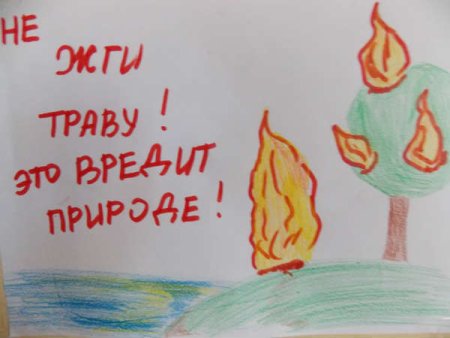 НЕ
ЖГИ
ТРАВУ!
ЭТО ВРЕДИТ
ПРИРОДЕ!